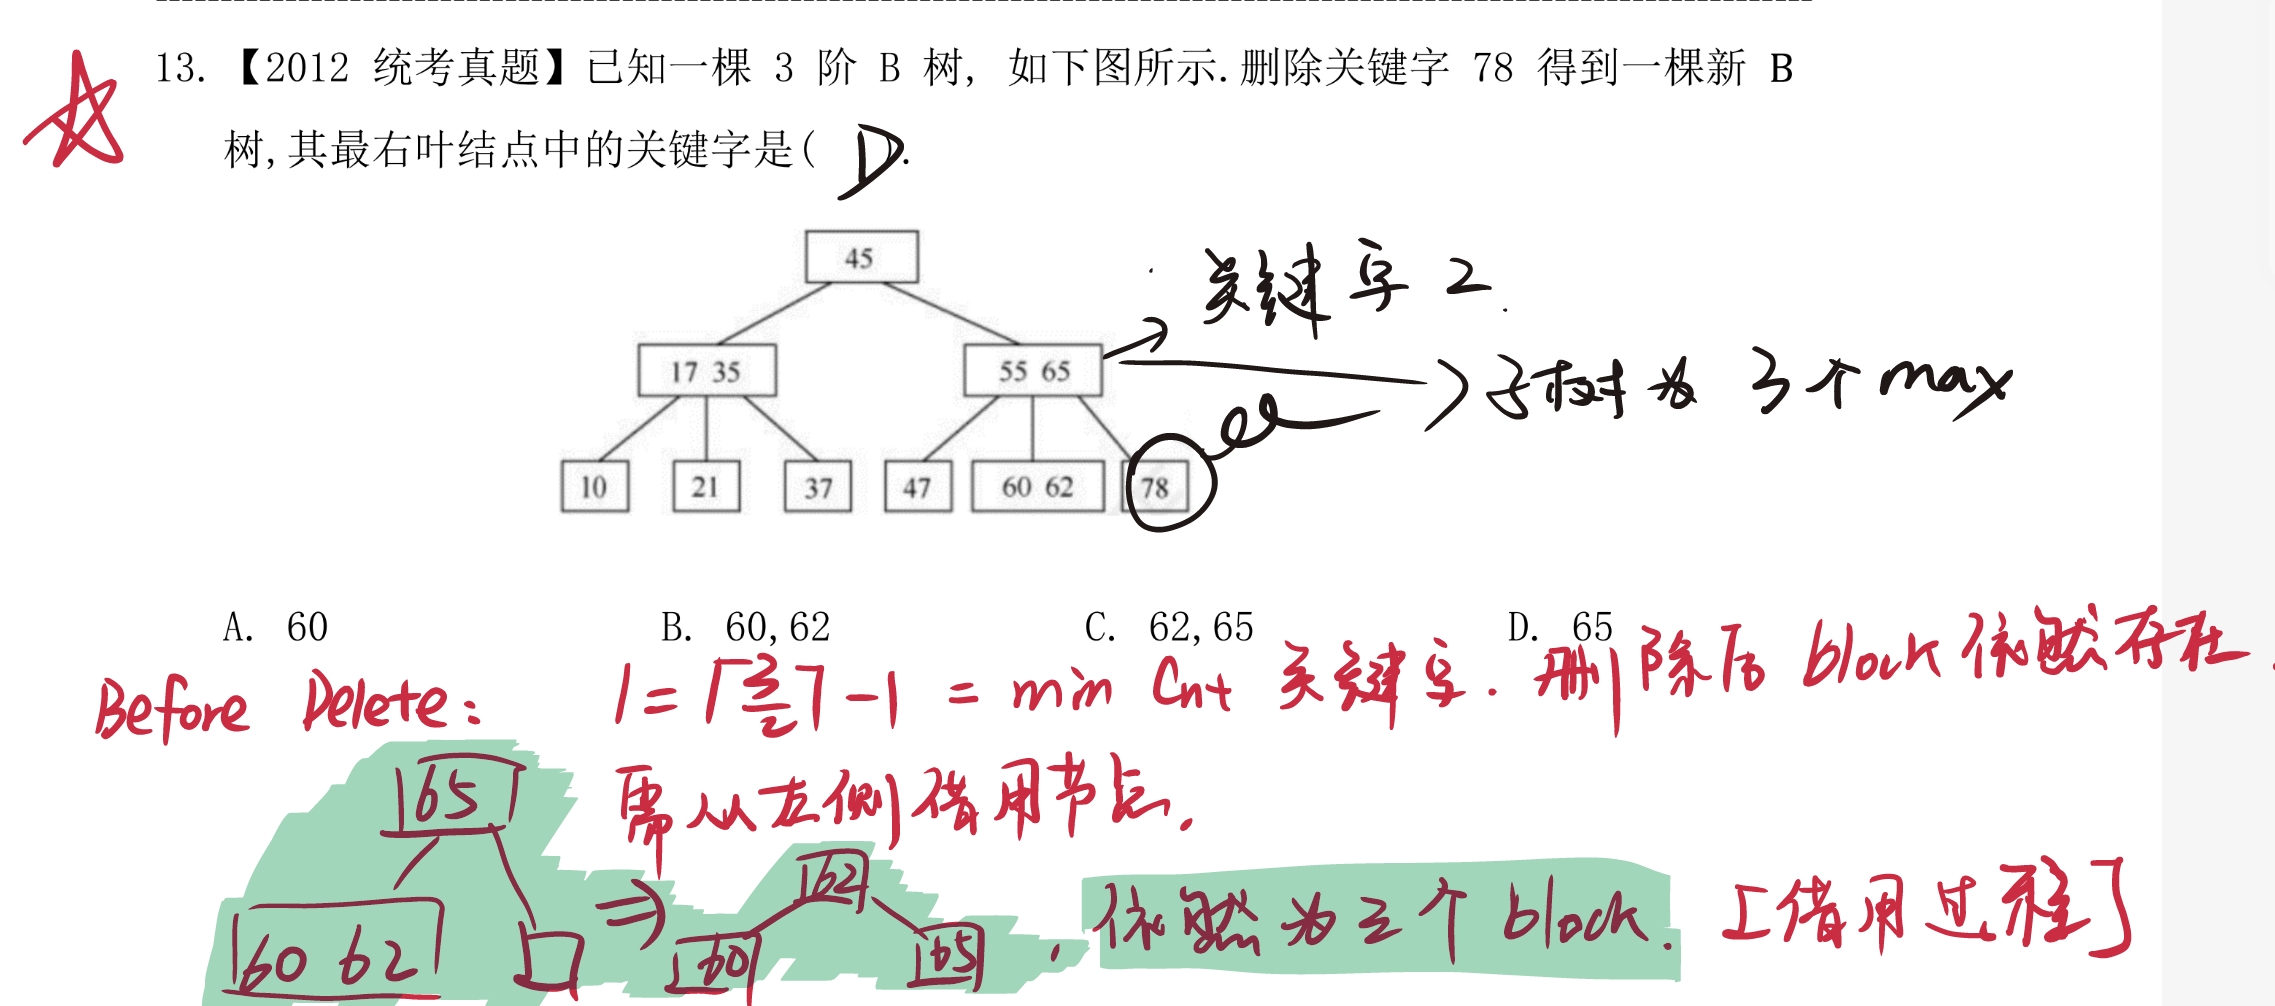 13. 【2012 统考真题】已知一棵 3 阶 B 树, 如下图所示.删除关键字 78 得到一棵新 B
树,其最右叶结点中的关键字是( D).
45
关键字 2.
17 35
55 65
子树为 3个max
10
21
37
47
60 62
78
A. 60
B. 60,62
C. 62,65
D. 65
Before Delete: 1=⌈3/2⌉-1 = min Cnt 关键字. 删除后 block依然存在.
需从左侧借用节点.
65
60 62
⇒
62
60
65
, 依然为三个 block. [借用过程]